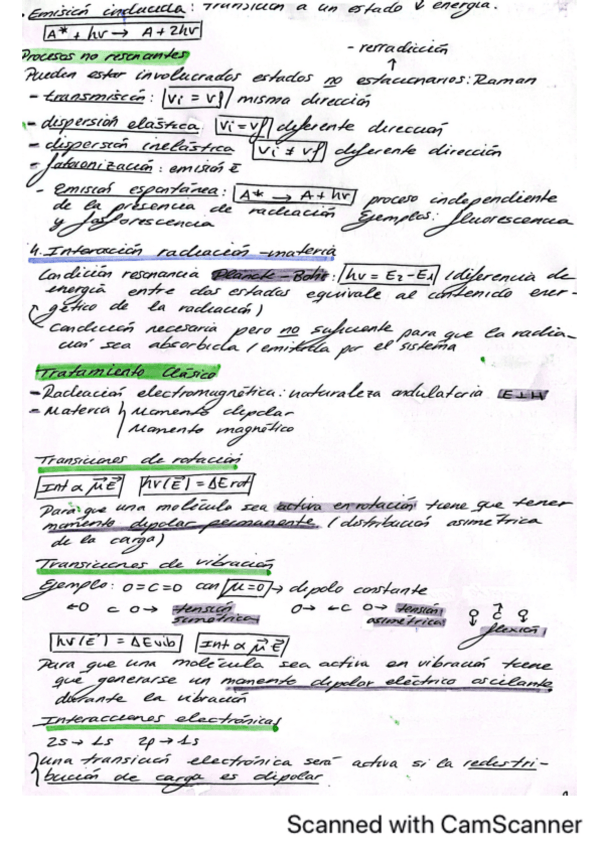 · Emisión inducida: Transición a un estado ↓ energía.
A* + hν → A + 2hν
- rerradicción
Procesos no resonantes ↑
Pueden estar involucrados estados no estacionarios: Raman
- transmisión: νi = νf / misma dirección
- dispersión elástica: νi = νf / diferente dirección
- dispersión inelástica νi ≠ νf / diferente dirección
- fotoionización: emisión ē
- Emisión espontánea: A* → A + hν proceso independiente
de la presencia de radiación Ejemplos: fluorescencia
y fosforescencia
4. Interacción radiación-materia
Condición resonancia Planck-Bohr: hν = E2 - E1 (diferencia de
energía entre dos estados equivale al contenido ener-
gético de la radiación)
Condición necesaria pero no suficiente para que la radia-
ción sea absorbida / emitida por el sistema
Tratamiento Clásico
- Radiación electromagnética: naturaleza ondulatoria E⊥H
- Materia } Momento dipolar
Momento magnético
Transiciones de rotación
Int α μ⃗ E⃗ hν(E⃗) = ΔE rot
Para que una molécula sea activa en rotación tiene que tener
momento dipolar permanente (distribución asimétrica
de la carga)
Transiciones de vibración
Ejemplo: O=C=O con μ=0 → dipolo constante
←O C O→ tensión simétrica O→ ←C O→ tensión asimétrica O C O flexión
hν(E⃗) = ΔE vib Int α μ⃗ E⃗
Para que una molécula sea activa en vibración tiene
que generarse un momento dipolar eléctrico oscilante
durante la vibración
Interacciones electrónicas
2s → 1s 2p → 1s
Una transición electrónica será activa si la redistri-
bución de carga es dipolar.
Scanned with CamScanner